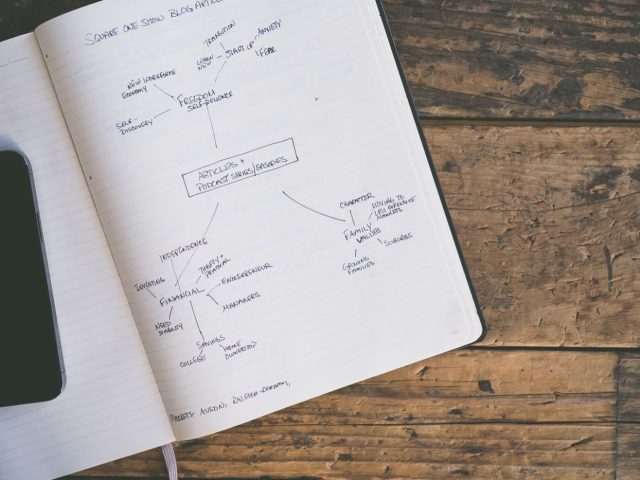 SQUARE ONE SHOW BLOG ARTICLE
TRANSITION
ANXIETY
LEARN
NEW
START UP
FEAR
NEW WORKFORCE
ECONOMY
FREEDOM
SELF-RELIANCE
SELF-
DISCOVERY
ARTICLES +
PODCAST SERIES/EPISODES
CHARACTER
MOVING TO
LESS EXPENSIVE
MARKETS
FAMILY
VALUES
SUBURBS
GROWING
FAMILIES
INDEPENDENCE
THRIFTY +
PRACTICAL
ENTREPRENEUR
INVESTING
FINANCIAL
MANAGERS
NEED
STABILITY
SAVINGS
COLLEGE
HOME
OWNERSHIP
AUSTIN, RALEIGH-DURHAM,